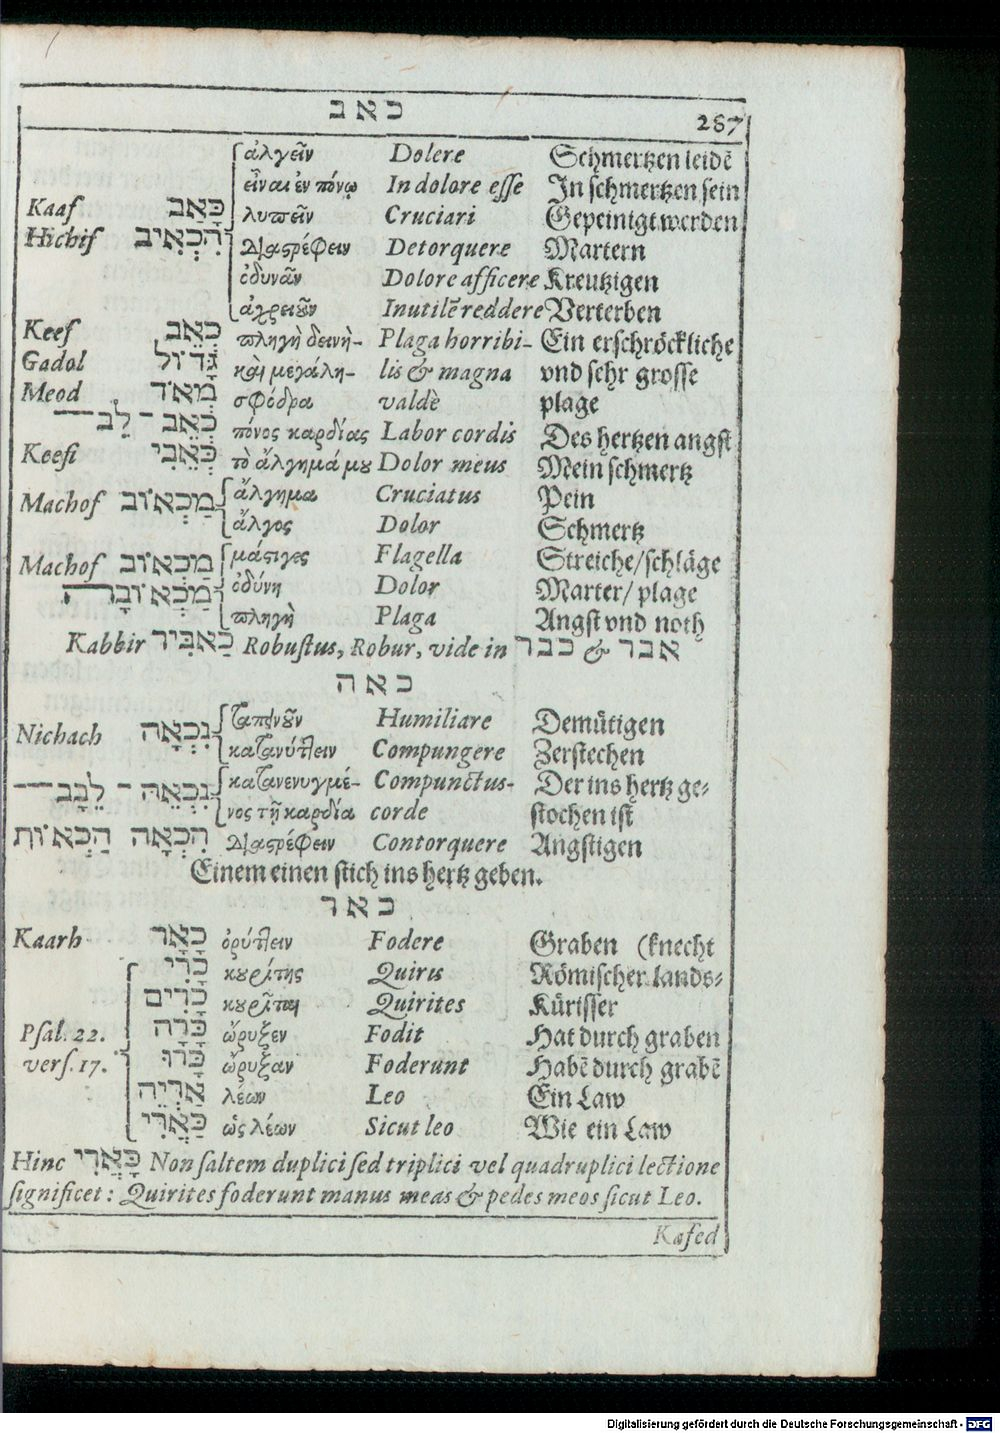 כאב
287
ἀλγεῖν Dolere Schmertzen leidẽ
εἶναι ἐν πόνῳ In dolore esse In schmertzen sein
Kaaf כָּאַב λυπεῖν Cruciari Gepeinigt werden
Hichif הִכְאִיב διαστρέφειν Detorquere Martern
ὀδυνᾶν Dolore afficere Kreutzigen
ἀχρειοῦν Inutilẽ reddere Verterben
Keef כְּאֵב πληγὴ δεινὴ- Plaga horribi- Ein erschröckliche
Gadol גָּדוֹל καὶ μεγάλη- lis & magna vnd sehr grosse
Meod מְאֹד σφόδρα valdè plage
כְּאֵב־לֵב πόνος καρδίας Labor cordis Des hertzen angst
Keefi כְּאֵבִי τὸ ἄλγημά μου Dolor meus Mein schmertz
Machof מַכְאוֹב ἄλγημα Cruciatus Pein
ἄλγος Dolor Schmertz
Machof מַכְאוֹב μάστιγες Flagella Streiche/schläge
מַכְאוֹבָה ὀδύνη Dolor Marter/ plage
πληγὴ Plaga Angst vnd noth
Kabbir כַּאבִּיר Robustus, Robur, vide in אבר & כבר
כאה
Nichach נִכְאָה ταπεινοῦν Humiliare Demütigen
κατανύττειν Compungere Zerstechen
נִכְאֵה־לֵבָב κατανενυγμέ- Compunctus- Der ins hertz ge-
νος τῇ καρδίᾳ corde stochen ist
הִכְאָה הַכְאוֹת διαστρέφειν Contorquere Angstigen
Einem einen stich ins hertz geben.
כאר
Kaarh כָּאַר ὀρύττειν Fodere Graben (knecht
כָּרִי κυρίτης Quiris Römischer lands-
כָּרִים κυρῖται Quirites Kürisser
Psal. 22. כָּרָה ὤρυξεν Fodit Hat durch graben
vers. 17. כָּרוּ ὤρυξαν Foderunt Habẽ durch grabẽ
אַרְיֵה λέων Leo Ein Law
כַּאֲרִי ὡς λέων Sicut leo Wie ein Law
Hinc כָּאֲרִי Non saltem duplici sed triplici vel quadruplici lectione
significet: Quirites foderunt manus meas & pedes meos sicut Leo.
Kafed
Digitalisierung gefördert durch die Deutsche Forschungsgemeinschaft - DFG